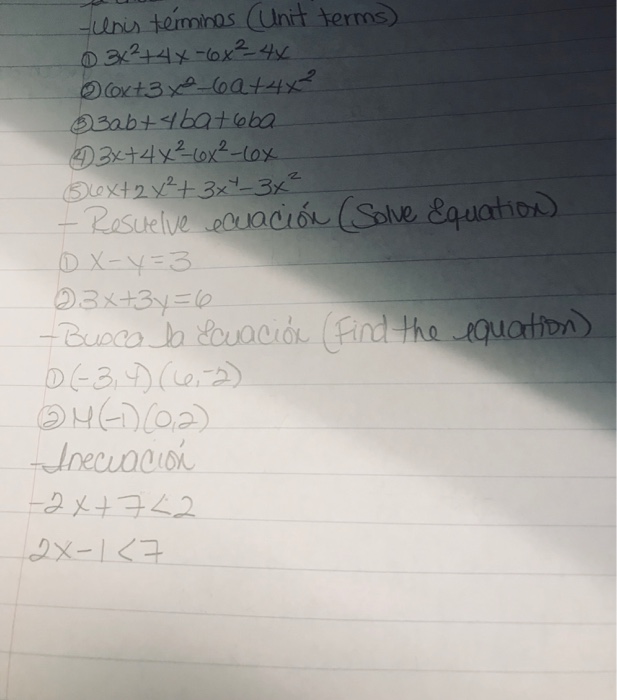 términos (Unit terms)
① 3x²+4x-6x²-4x
② 6x+3x²-6a+4x²
③ 3ab+4ba+6ba
④ 3x+4x²-6x²-6x
⑤ 6x+2x²+3x⁴-3x²
- Resuelve ecuación (Solve Equation)
① x-y=3
② 3x+3y=6
- Busca la Ecuación (Find the equation)
① (-3,4)(6,-2)
② M(-1)(0,2)
- Inecuación
-2x+7<2
2x-1<7